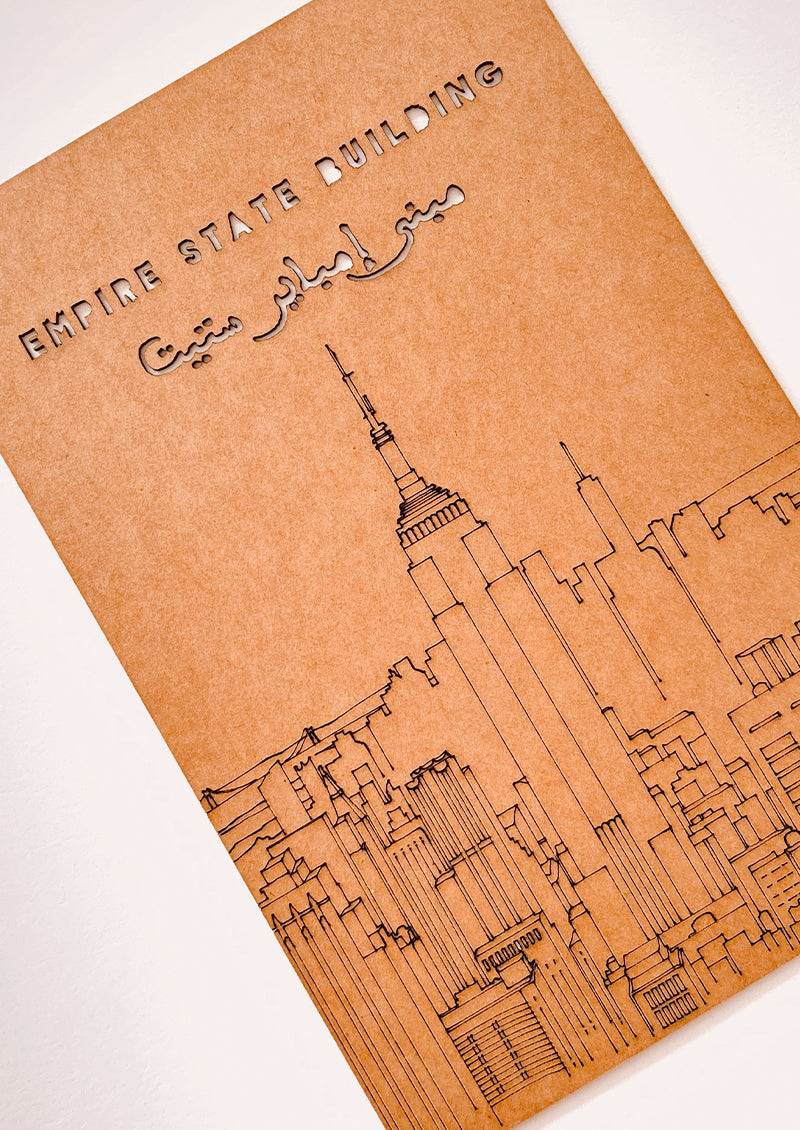 EMPIRE STATE BUILDING
مبنى إمباير ستيت